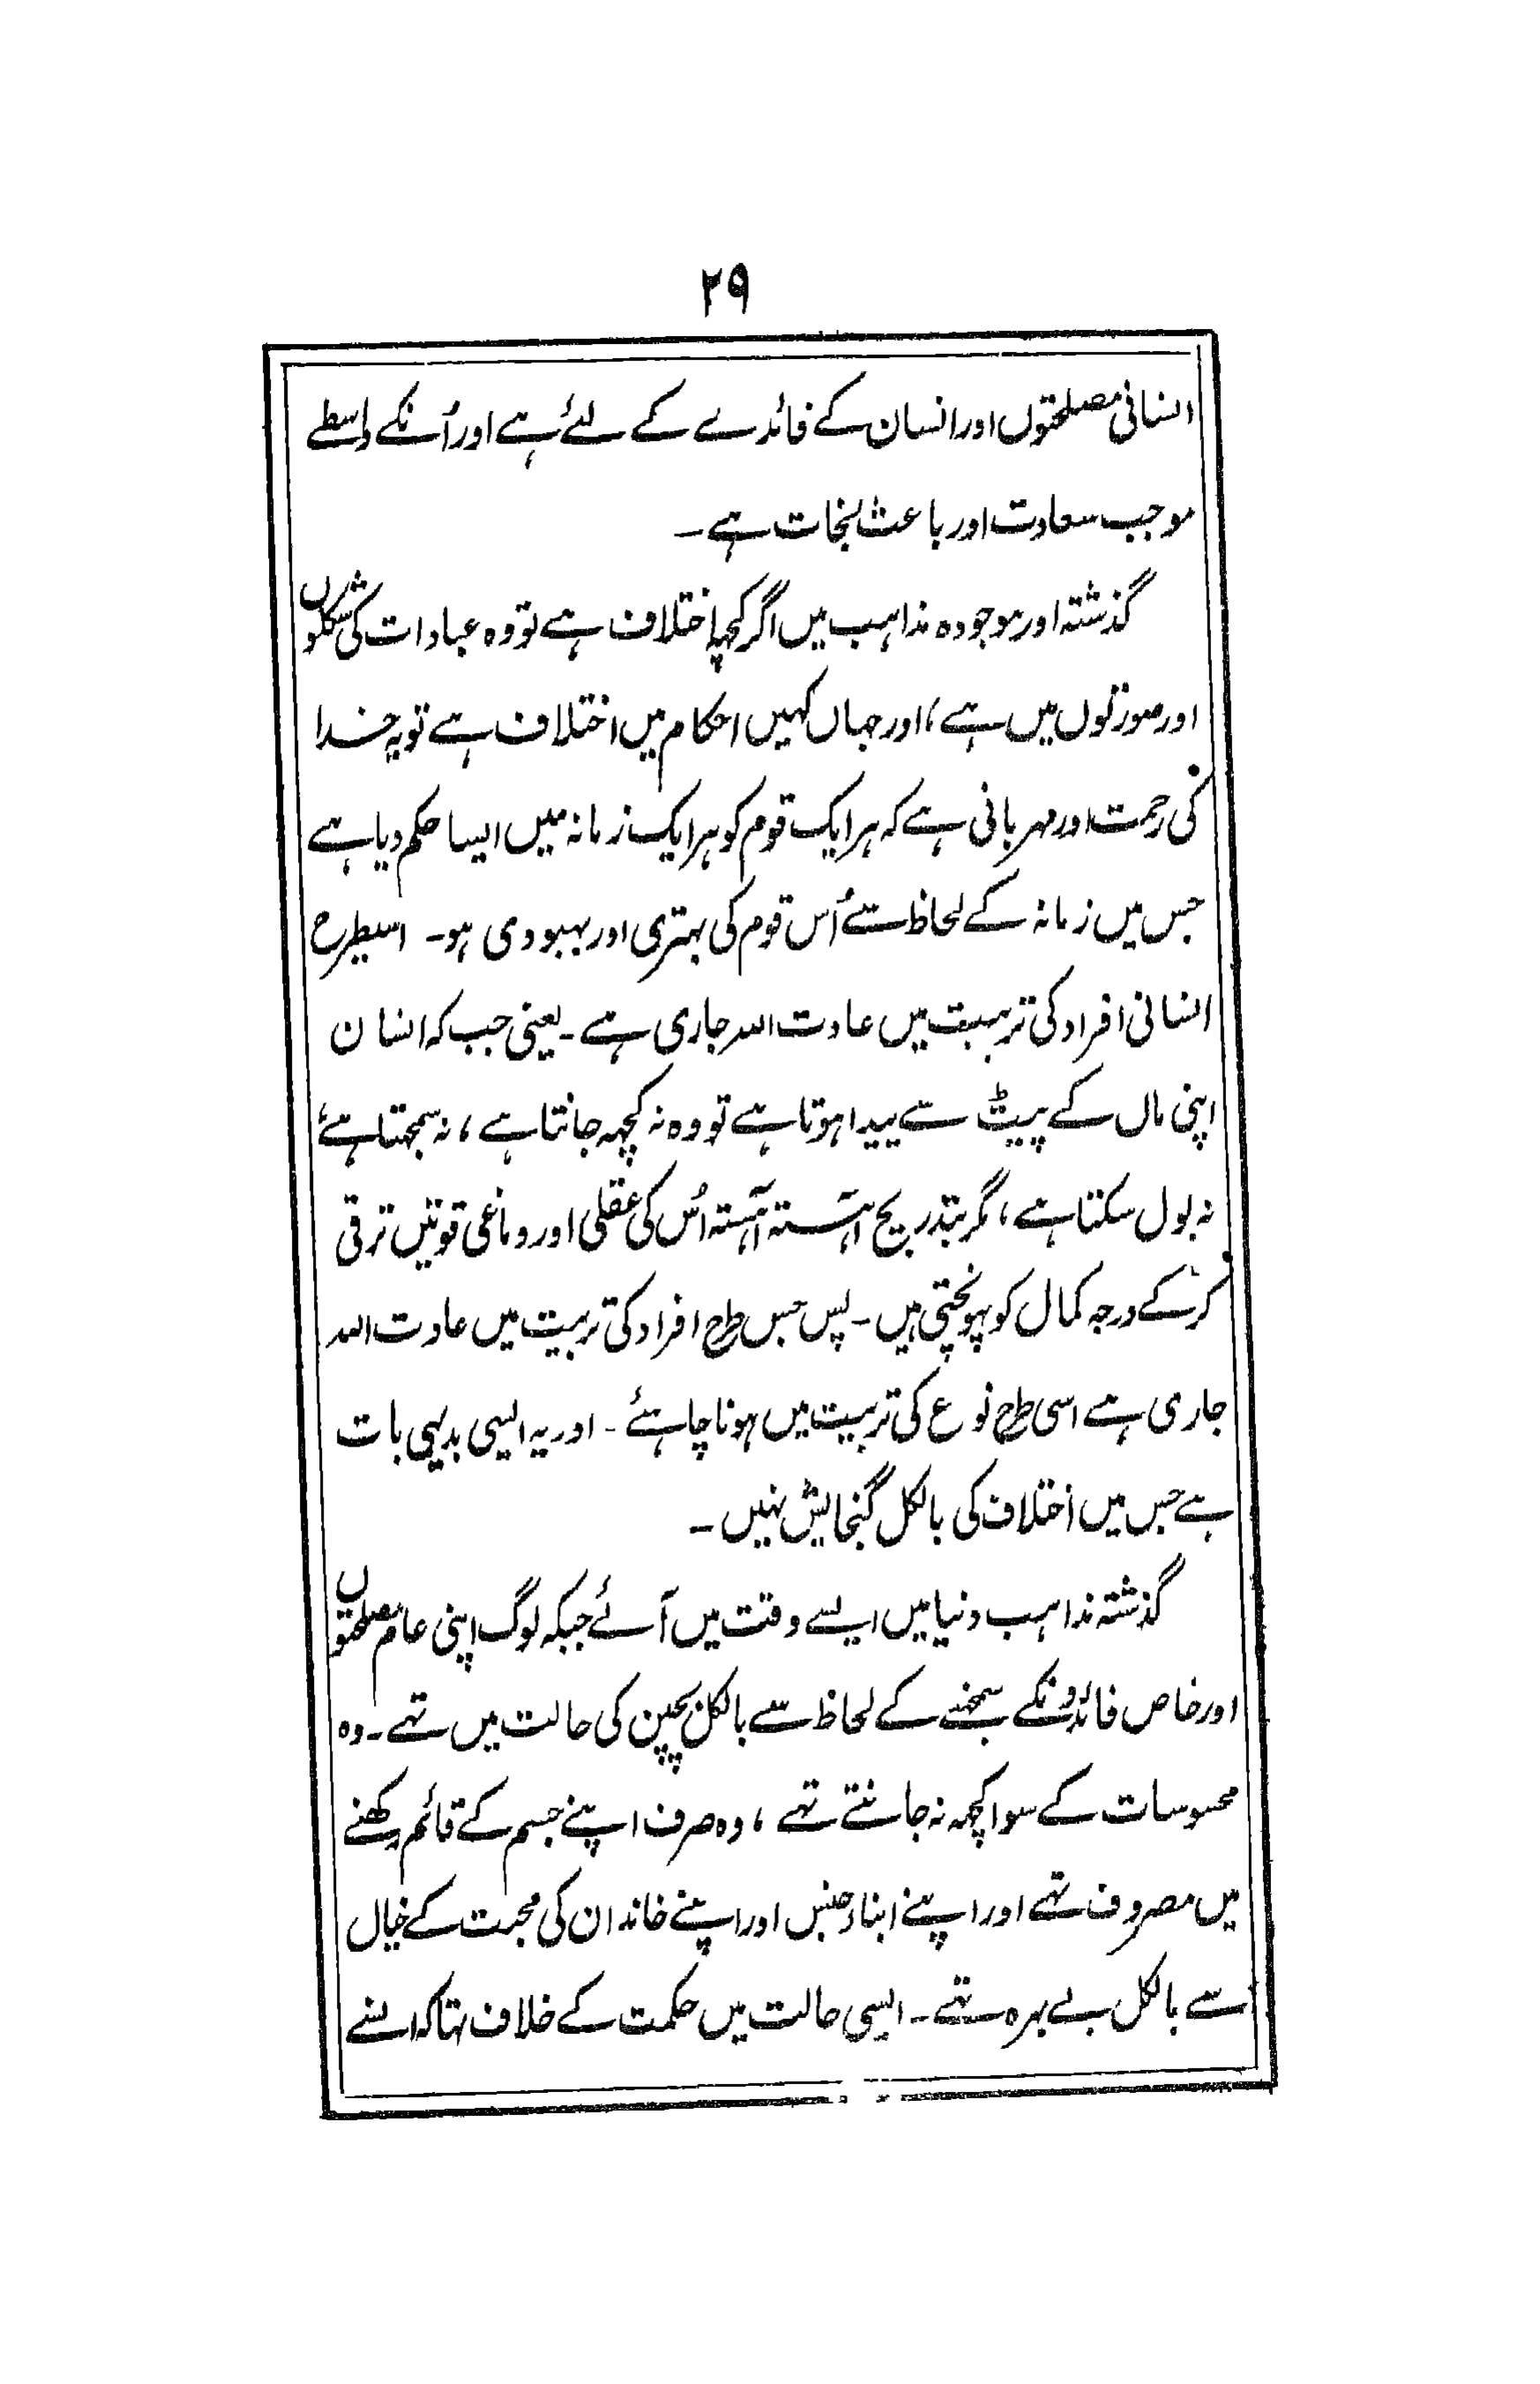 ۲۹
انسانی مصلحتوں اور انسان کے فائدے کے لئے ہے اور اُنکے واسطے
موجب سعادت اور باعث نجات ہے ۔
گذشتہ اور موجودہ مذاہب میں اگر کچہہ اختلاف ہے تو وہ عبادات کی شکلوں
اور صورتوں میں ہے ، اور جہاں کہیں احکام میں اختلاف ہے تو یہ خدا
کی رحمت اور مہربانی ہے کہ ہر ایک قوم کو ہر ایک زمانہ میں ایسا حکم دیا ہے
جس میں زمانہ کے لحاظ سے اُس قوم کی بہتری اور بہبودی ہو ۔ اسیطرح
انسانی افراد کی تربیت میں عادت اللہ جاری ہے ۔ یعنی جب کہ انسان
اپنی ماں کے پیٹ سے پیدا ہوتا ہے تو وہ نہ کچہہ جانتا ہے ، نہ سمجہتا ہے
نہ بول سکتا ہے ، مگر بتدریج آہستہ آہستہ اُس کی عقلی اور دماغی قوتیں ترقی
کر کے درجہ کمال کو پہونچتی ہیں ۔ پس جس طرح افراد کی تربیت میں عادت اللہ
جاری ہے اسی طرح نوع کی تربیت میں ہونا چاہئے ۔ اور یہ ایسی بدیہی بات
ہے جس میں اختلاف کی بالکل گنجایش نہیں ۔
گذشتہ مذاہب دنیا میں ایسے وقت میں آئے جبکہ لوگ اپنی عام مصلحتوں
اور خاص فائدونکے سمجہنے کے لحاظ سے بالکل بچپن کی حالت میں تہے ۔ وہ
محسوسات کے سوا کچہہ نہ جانتے تہے ، وہ صرف اپنے جسم کے قائم رکھنے
میں مصروف تہے اور اپنے ابناء جنس اور اپنے خاندان کی محبت کے خیال
سے بالکل بے بہرہ تہے ۔ ایسی حالت میں حکمت کے خلاف تہا کہ انسے